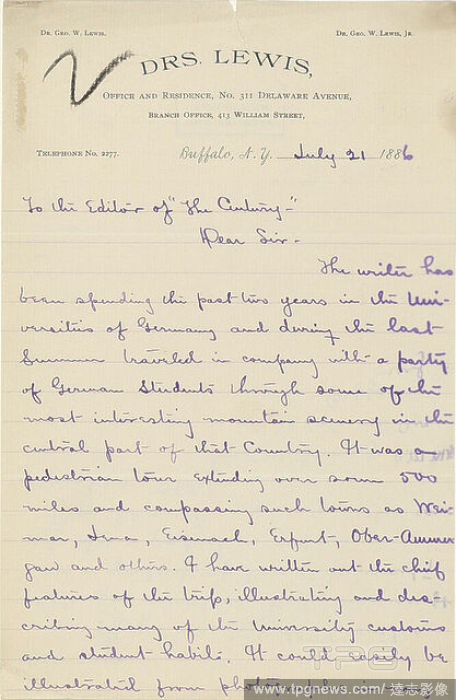 Dr. Geo. W. Lewis.
Dr. Geo. W. Lewis, Jr.
DRS. LEWIS,
Office and Residence, No. 311 Delaware Avenue,
Branch Office, 413 William Street,
Telephone No. 2277.
Buffalo, N.Y. July 21 1886
To the Editor of "The Century-"
Dear Sir-
The writer has
been spending the past two years in the Uni-
versities of Germany and during the last
Summer traveled in company with a party
of German Students through some of the
most interesting mountain scenery in the
central part of that Country. It was a
pedestrian tour extending over some 500
miles and compassing such towns as Wei-
mar, Jena, Eisenach, Erfurt, Ober-Ammer
gau and others. I have written out the chief
features of the trip, illustrating and des-
cribing many of the University customs
and student habits. It could easily be
illustrated from
TPG
www.tpgnews.com / 達志影像